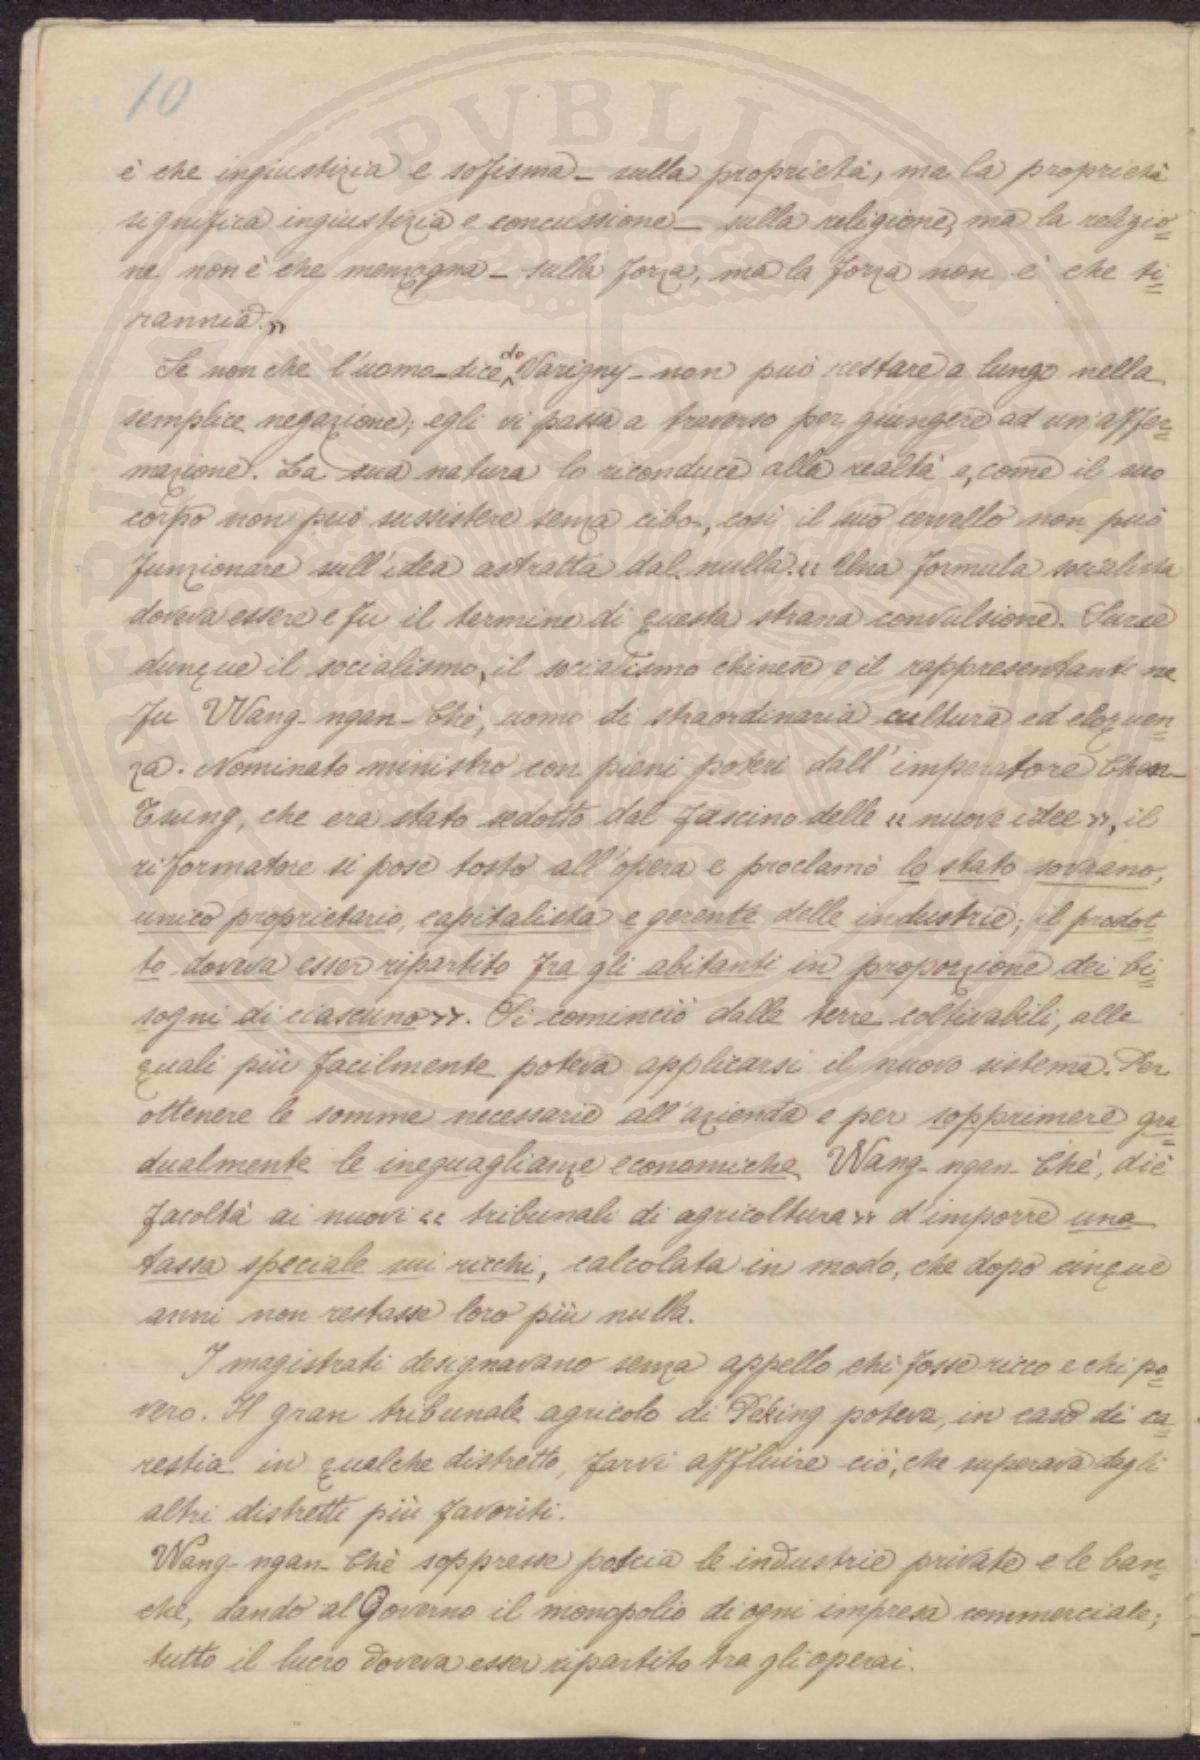 10
è che ingiustizia e sofisma – sulla proprietà, ma la proprietà
significa ingiustizia e concussione – sulla religione, ma la religio=
ne non è che menzogna – sulla forza, ma la forza non è che ti=
rannia.»
Se non che l'uomo – dice de Varigny – non può restare a lungo nella
semplice negazione; egli vi passa a traverso per giungere ad un'affer=
mazione. La sua natura lo riconduce alla realtà e, come il suo
corpo non può sussistere senza cibo, così il suo cervello non può
funzionare sull'idea astratta dal nulla. « Una formula socialista
doveva essere e fu il termine di questa strana convulsione. Surse
dunque il socialismo, il socialismo chinese e il rappresentante ne
fu Wang-ngan-Ché, uomo di straordinaria cultura ed eloquen=
za. Nominato ministro con pieni poteri dall'imperatore Chen-
Tsung, che era stato sedotto dal fascino delle « nuove idee », il
riformatore si pose tosto all'opera e proclamò lo stato sovrano,
unico proprietario, capitalista e gerente delle industrie; il prodot=
to doveva esser ripartito fra gli abitanti in proporzione dei bi=
sogni di ciascuno ». Si cominciò dalle terre coltivabili, alle
quali più facilmente poteva applicarsi il nuovo sistema. Per
ottenere le somme necessarie all'azienda e per sopprimere gra=
dualmente le ineguaglianze economiche Wang-ngan-Ché, diè
facoltà ai nuovi « tribunali di agricoltura » d'imporre una
tassa speciale sui ricchi, calcolata in modo, che dopo cinque
anni non restasse loro più nulla.
I magistrati designavano senza appello chi fosse ricco e chi po=
vero. Il gran tribunale agricolo di Peking poteva, in caso di ca=
restia in qualche distretto, farvi affluire ciò, che superava dagli
altri distretti più favoriti.
Wang-ngan-Ché soppresse poscia le industrie private e le ban=
che, dando al Governo il monopolio di ogni impresa commerciale;
tutto il lucro doveva esser ripartito tra gli operai.